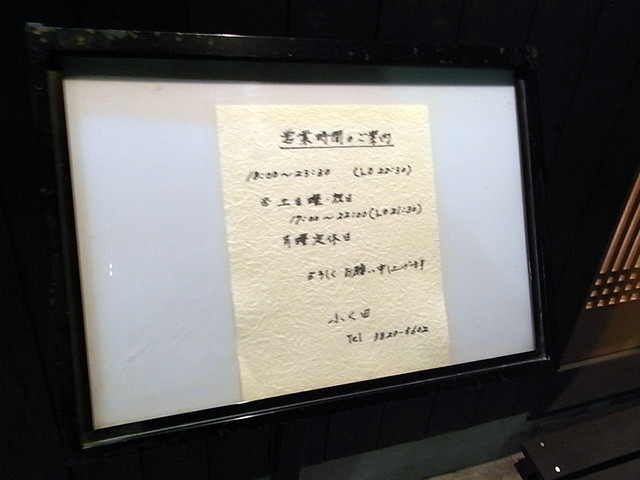 営業時間のご案内
18:00〜23:30 (L.O 22:30)
※ 土日曜・祝日
17:00〜22:00 (L.O 21:30)
月曜定休日
よろしくお願い申し上げます
ふく田
Tel 3820-8602